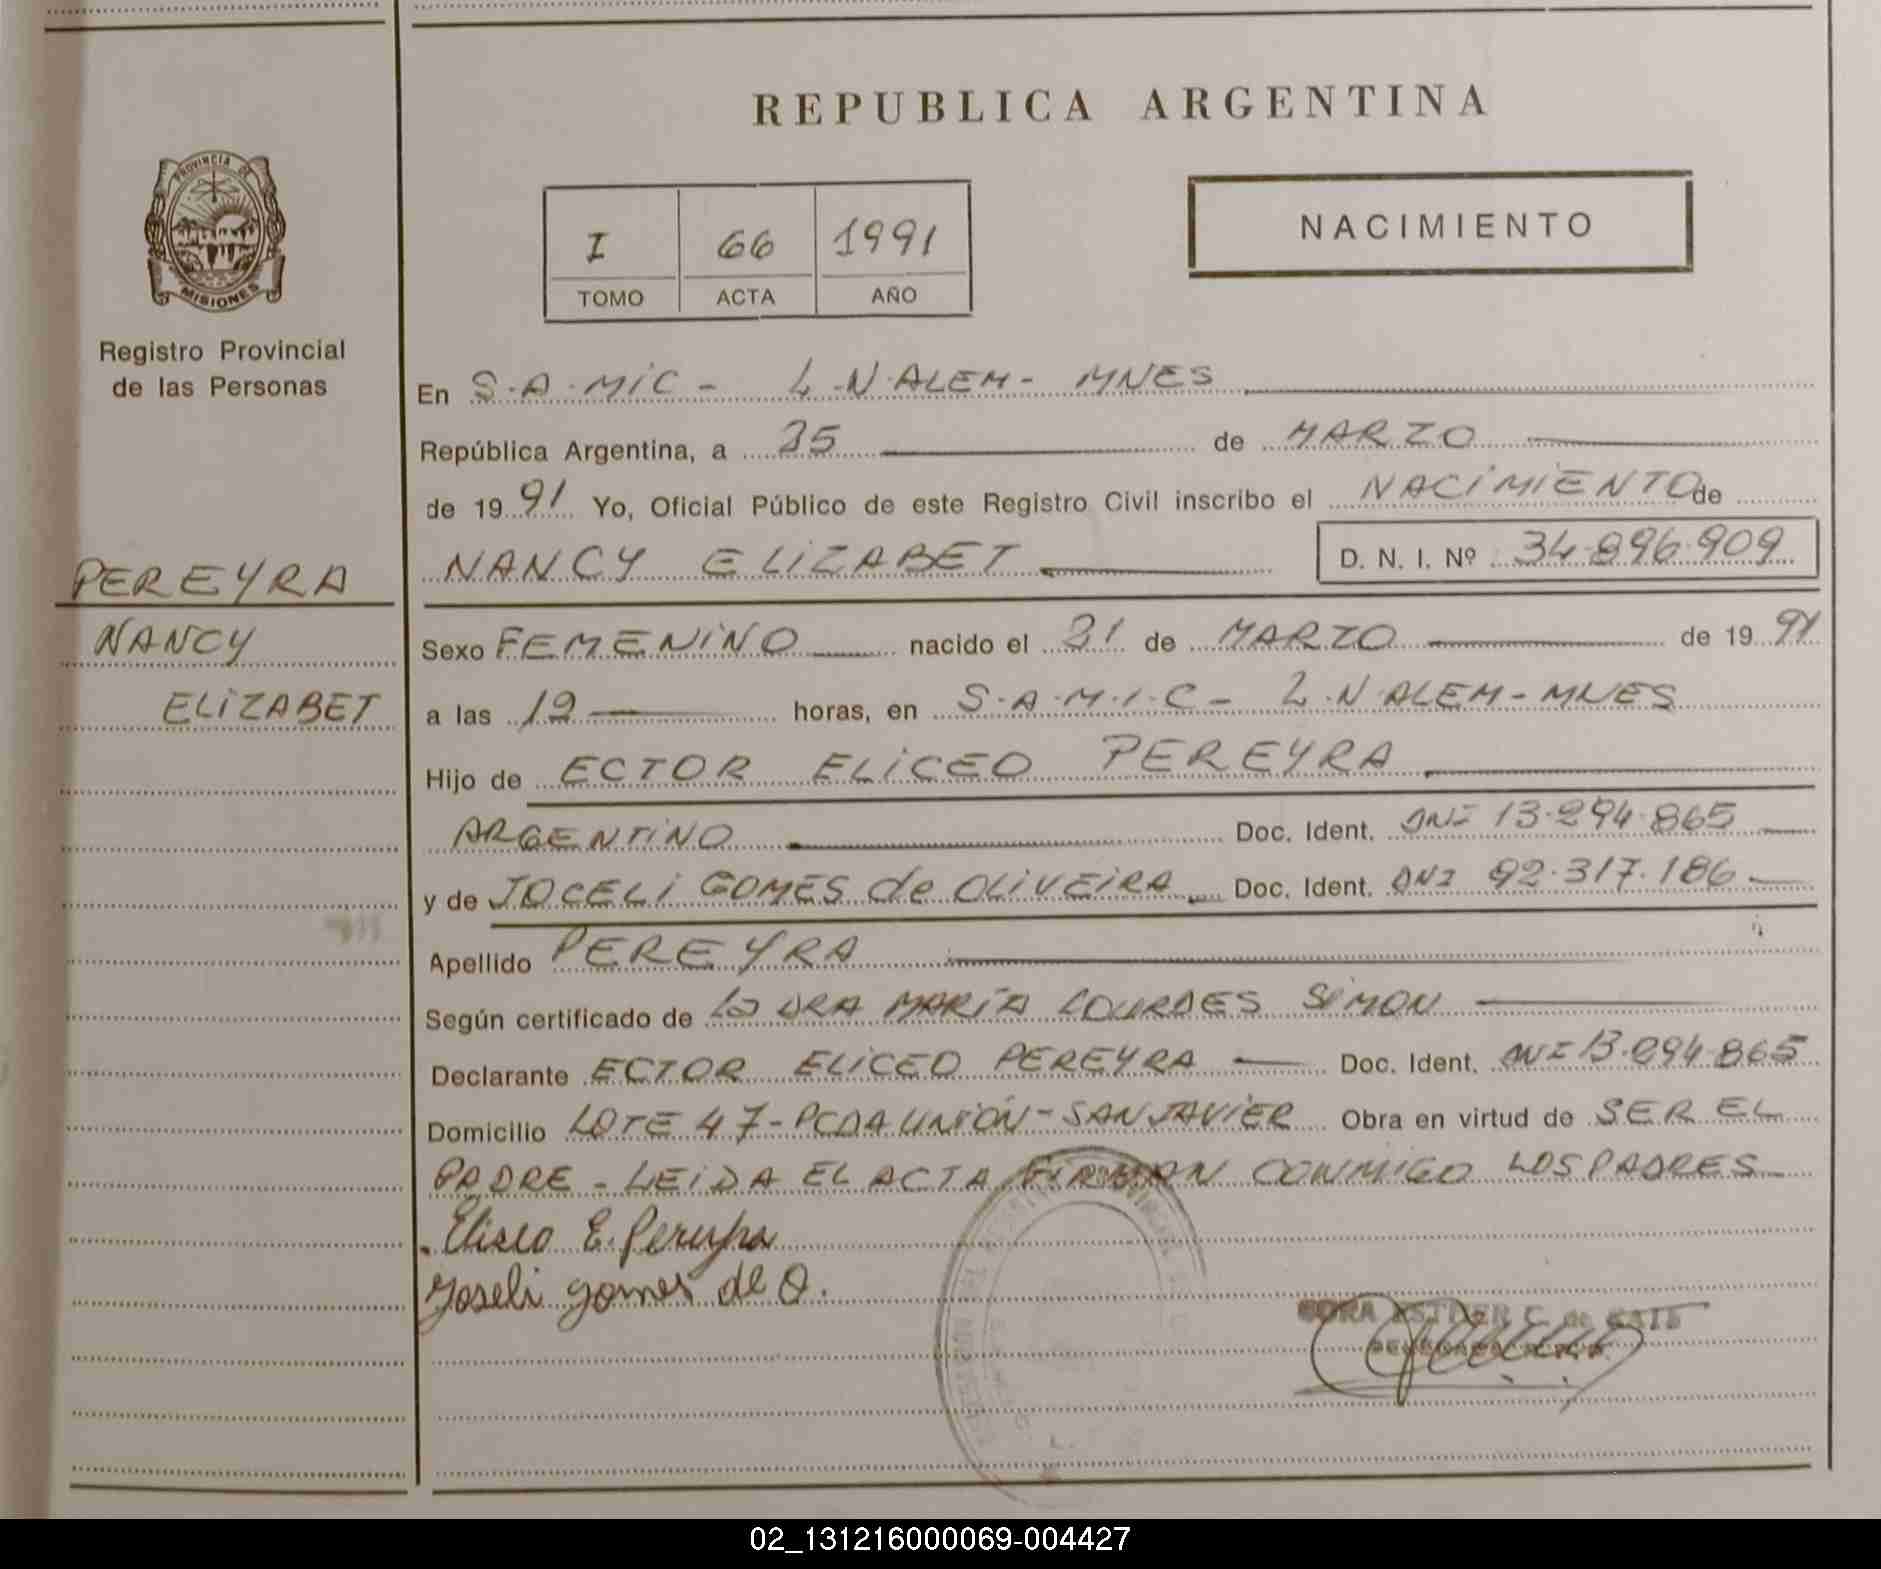 REPUBLICA ARGENTINA
PROVINCIA DE
MISIONES
Registro Provincial
de las Personas
I 66 1991
TOMO ACTA AÑO
NACIMIENTO
PEREYRA
NANCY
ELIZABET
En S.A.MIC - L.N.ALEM - MNES
República Argentina, a 25 de MARZO
de 1991 Yo, Oficial Público de este Registro Civil inscribo el NACIMIENTO de
NANCY ELIZABET D. N. I. Nº 34.896.909
Sexo FEMENINO nacido el 21 de MARZO de 1991
a las 19 horas, en S.A.M.I.C - L.N.ALEM - MNES
Hijo de ECTOR ELICEO PEREYRA
ARGENTINO Doc. Ident. DNI 13.294.865
y de JOCELI GOMES de OLIVEIRA Doc. Ident. DNI 92.317.186
Apellido PEREYRA
Según certificado de La DRA MARIA LOURDES SIMON
Declarante ECTOR ELICEO PEREYRA Doc. Ident. DNI 13.294.865
Domicilio LOTE 47 - PCDA UNIÓN - SAN JAVIER Obra en virtud de SER EL
PADRE - LEIDA EL ACTA FIRMAN CONMIGO LOS PADRES
Eliseo E. Pereyra
Yoseli gomes de O.
ESTHER C. de
02_131216000069-004427